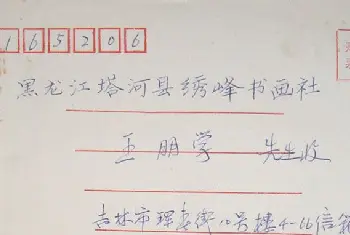 165206
黑龙江塔河县绣峰书画社
王朋学 先生收
吉林市珲春街12号楼4-66信箱